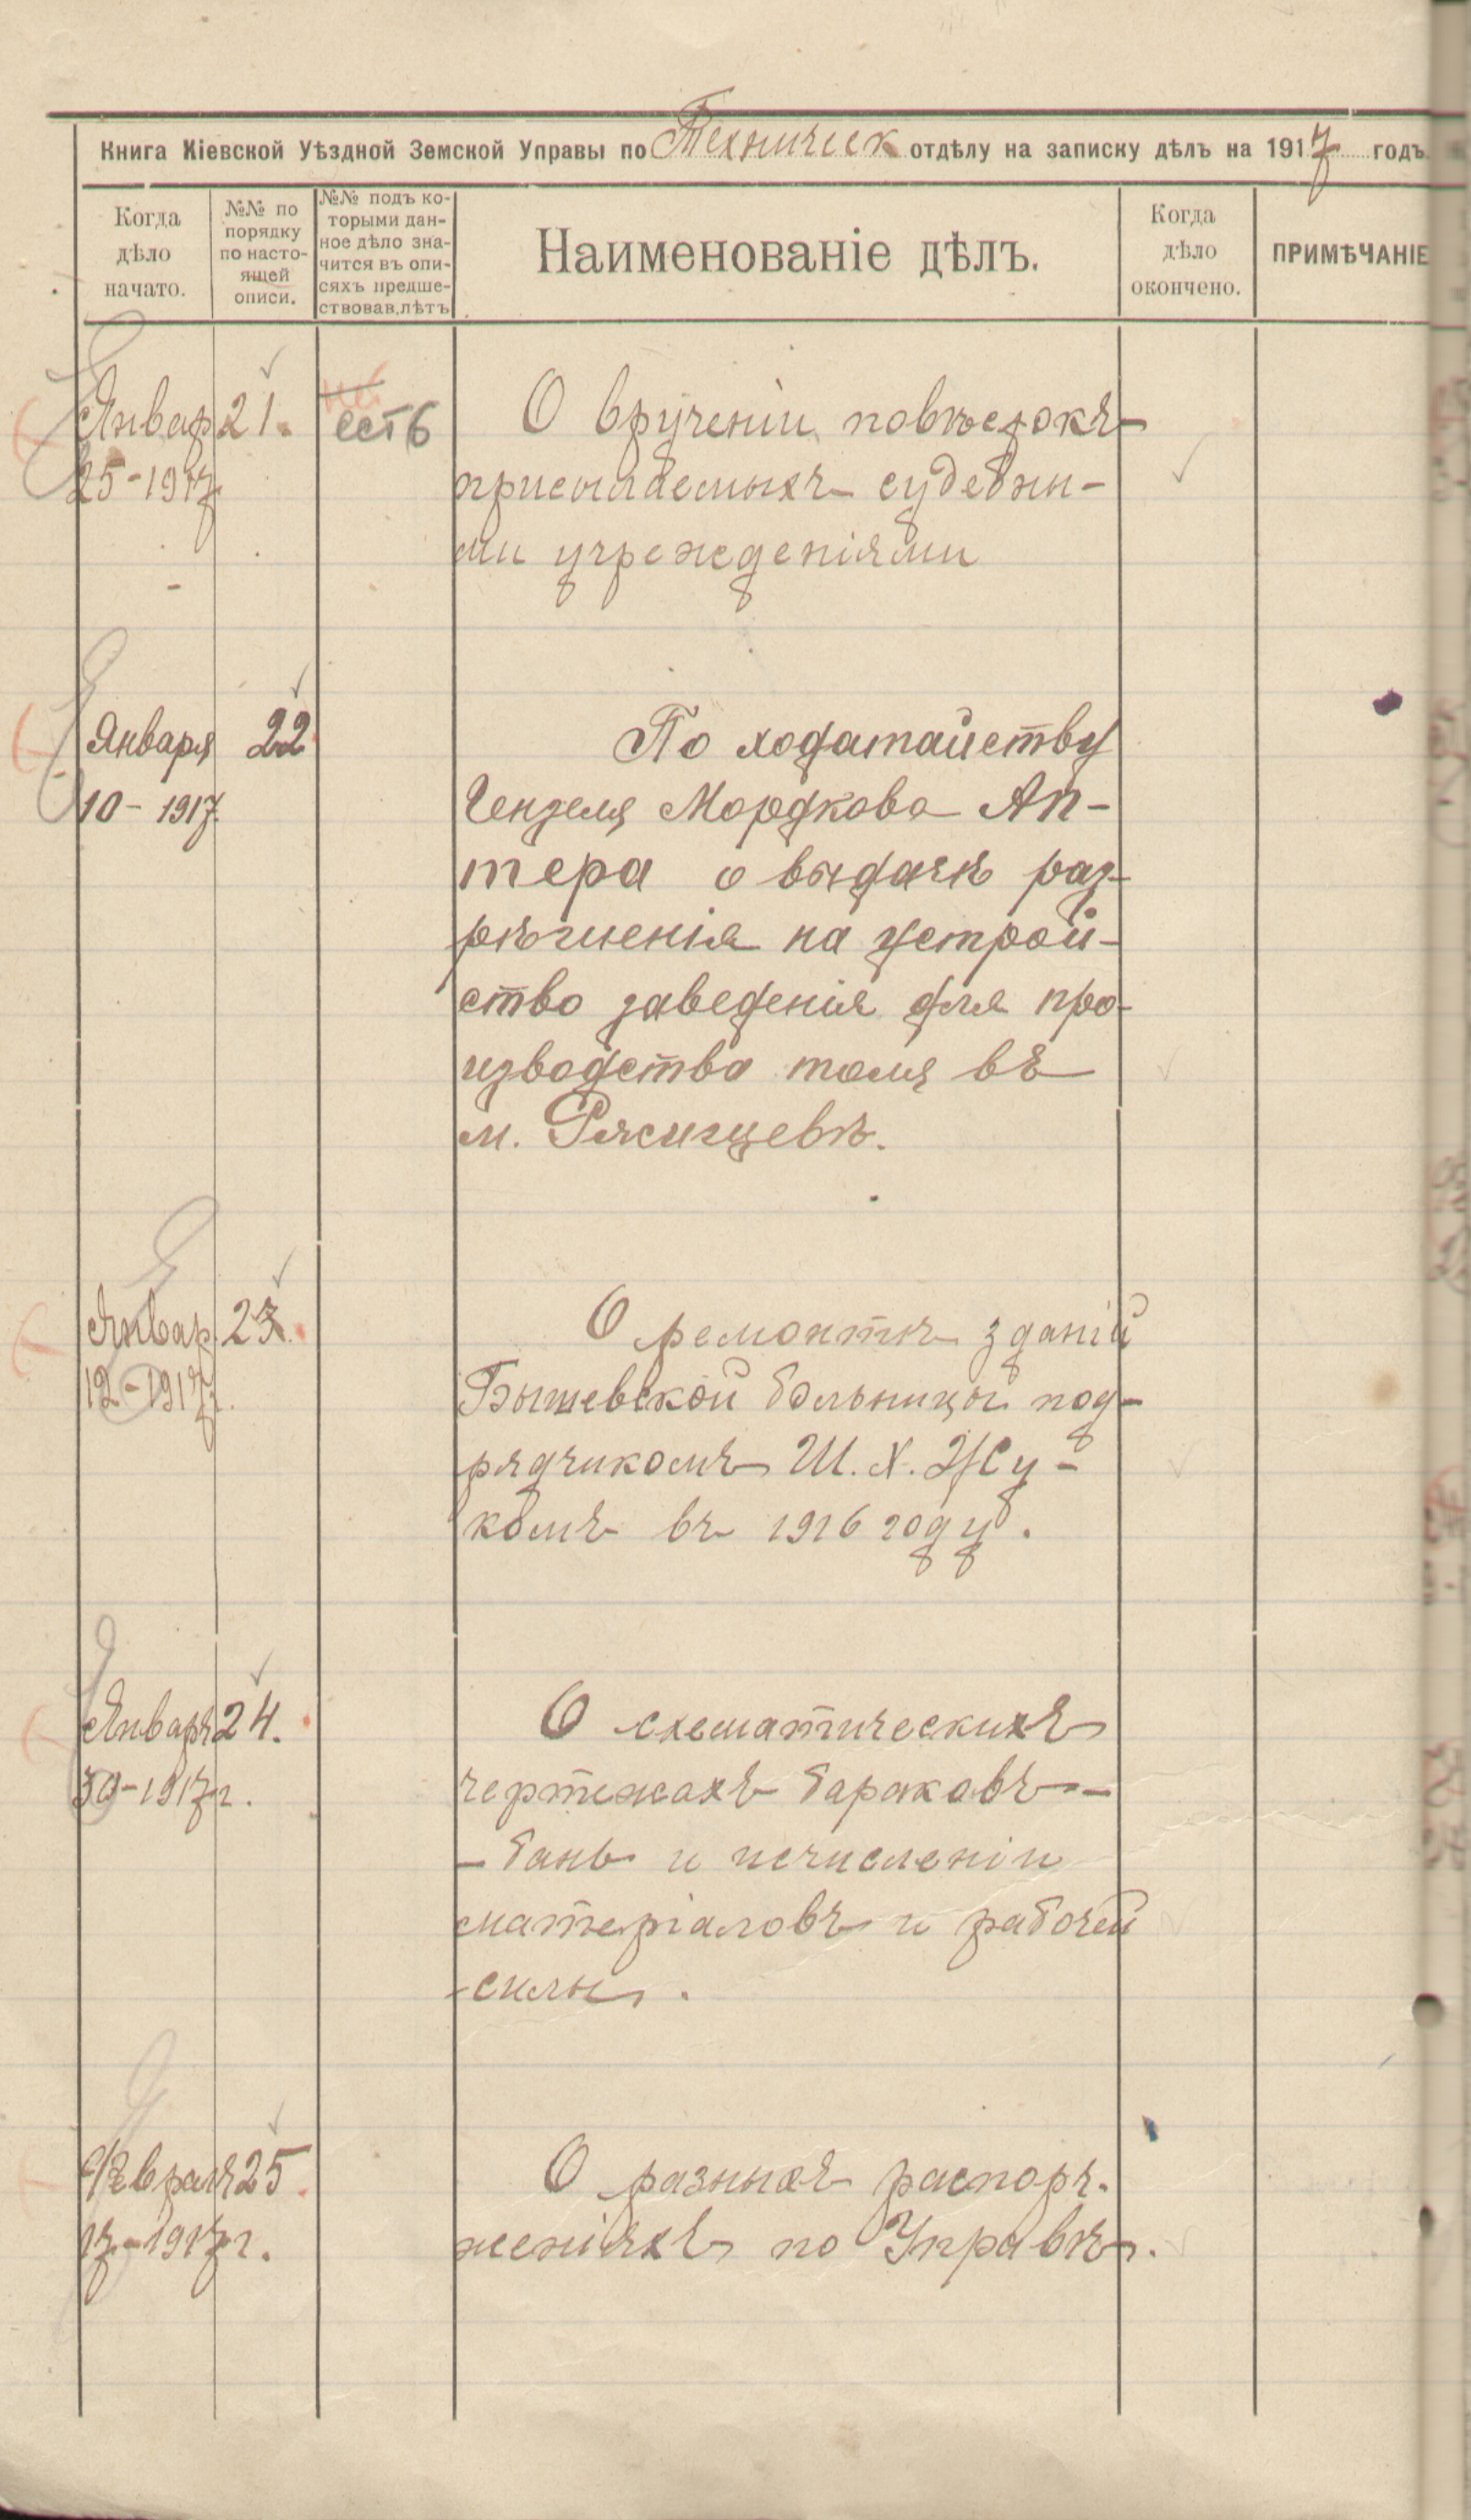 Книга Кіевской Уѣздной Земской Управы по Техническ отдѣлу на записку дѣлъ на 1917 годъ.
Когда
дѣло
начато.
№№ по
порядку
по насто-
ящей
описи.
№№ подъ ко-
торыми дан-
ное дѣло зна-
чится въ опи-
сяхъ предше-
ствовав. лѣтъ
Наименованіе дѣлъ.
Когда
дѣло
окончено.
ПРИМѢЧАНІЕ
Январ 21. есть О врученіи повѣстокъ
25-1917 присылаемыхъ судебны-
ми учрежденіями
Января 22 По ходатайству
10- 1917 Гензеля Мордкова Ап-
тера о выдачѣ раз-
рѣшенія на устрой-
ство заведенія для про-
изводства толя въ
м. Ржищевѣ.
Январ. 23. О ремонтѣ зданій
12-1917г. Бышевской больницы под-
рядчикомъ Ш. Х. Жу-
комъ въ 1916 году.
Январь 24. О схематическихъ
30-1917г. чертежахъ бараковъ-
-бань и исчисленіи
матеріаловъ и рабочей
силы.
Февраля 25. О разныхъ распоря-
17-1917г. женіяхъ по Управѣ.